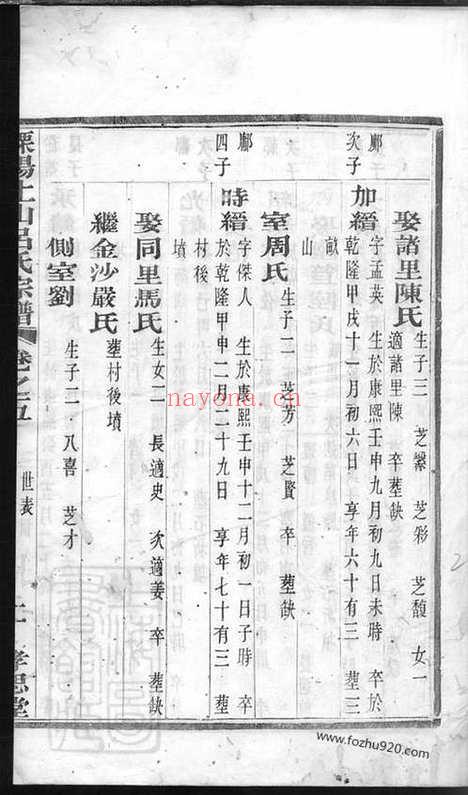 娶諸里陳氏 生子三 芝縈 芝彩 芝馥 女一
適諸里陳 卒塟缺
鄺次子
加縉 字孟英 生於康熙壬申九月初九日未時 卒於
乾隆甲戌十一月初六日 享年六十有三 塟三
畝山
室周氏 生子二 芝芳 芝賢 卒 塟缺
鄺四子
時縉 字傑人 生於康熙壬申十二月初一日子時 卒
於乾隆甲申二月二十九日 享年七十有三 塟
村後墳
娶同里馬氏 生女二 長適史 次適姜 卒 塟缺
繼金沙嚴氏 塟村後墳
側室劉 生子二 八喜 芝才
溧陽上山呂氏宗譜 卷之五 世表 孝思堂
nayona.cn
www.fozhu920.com